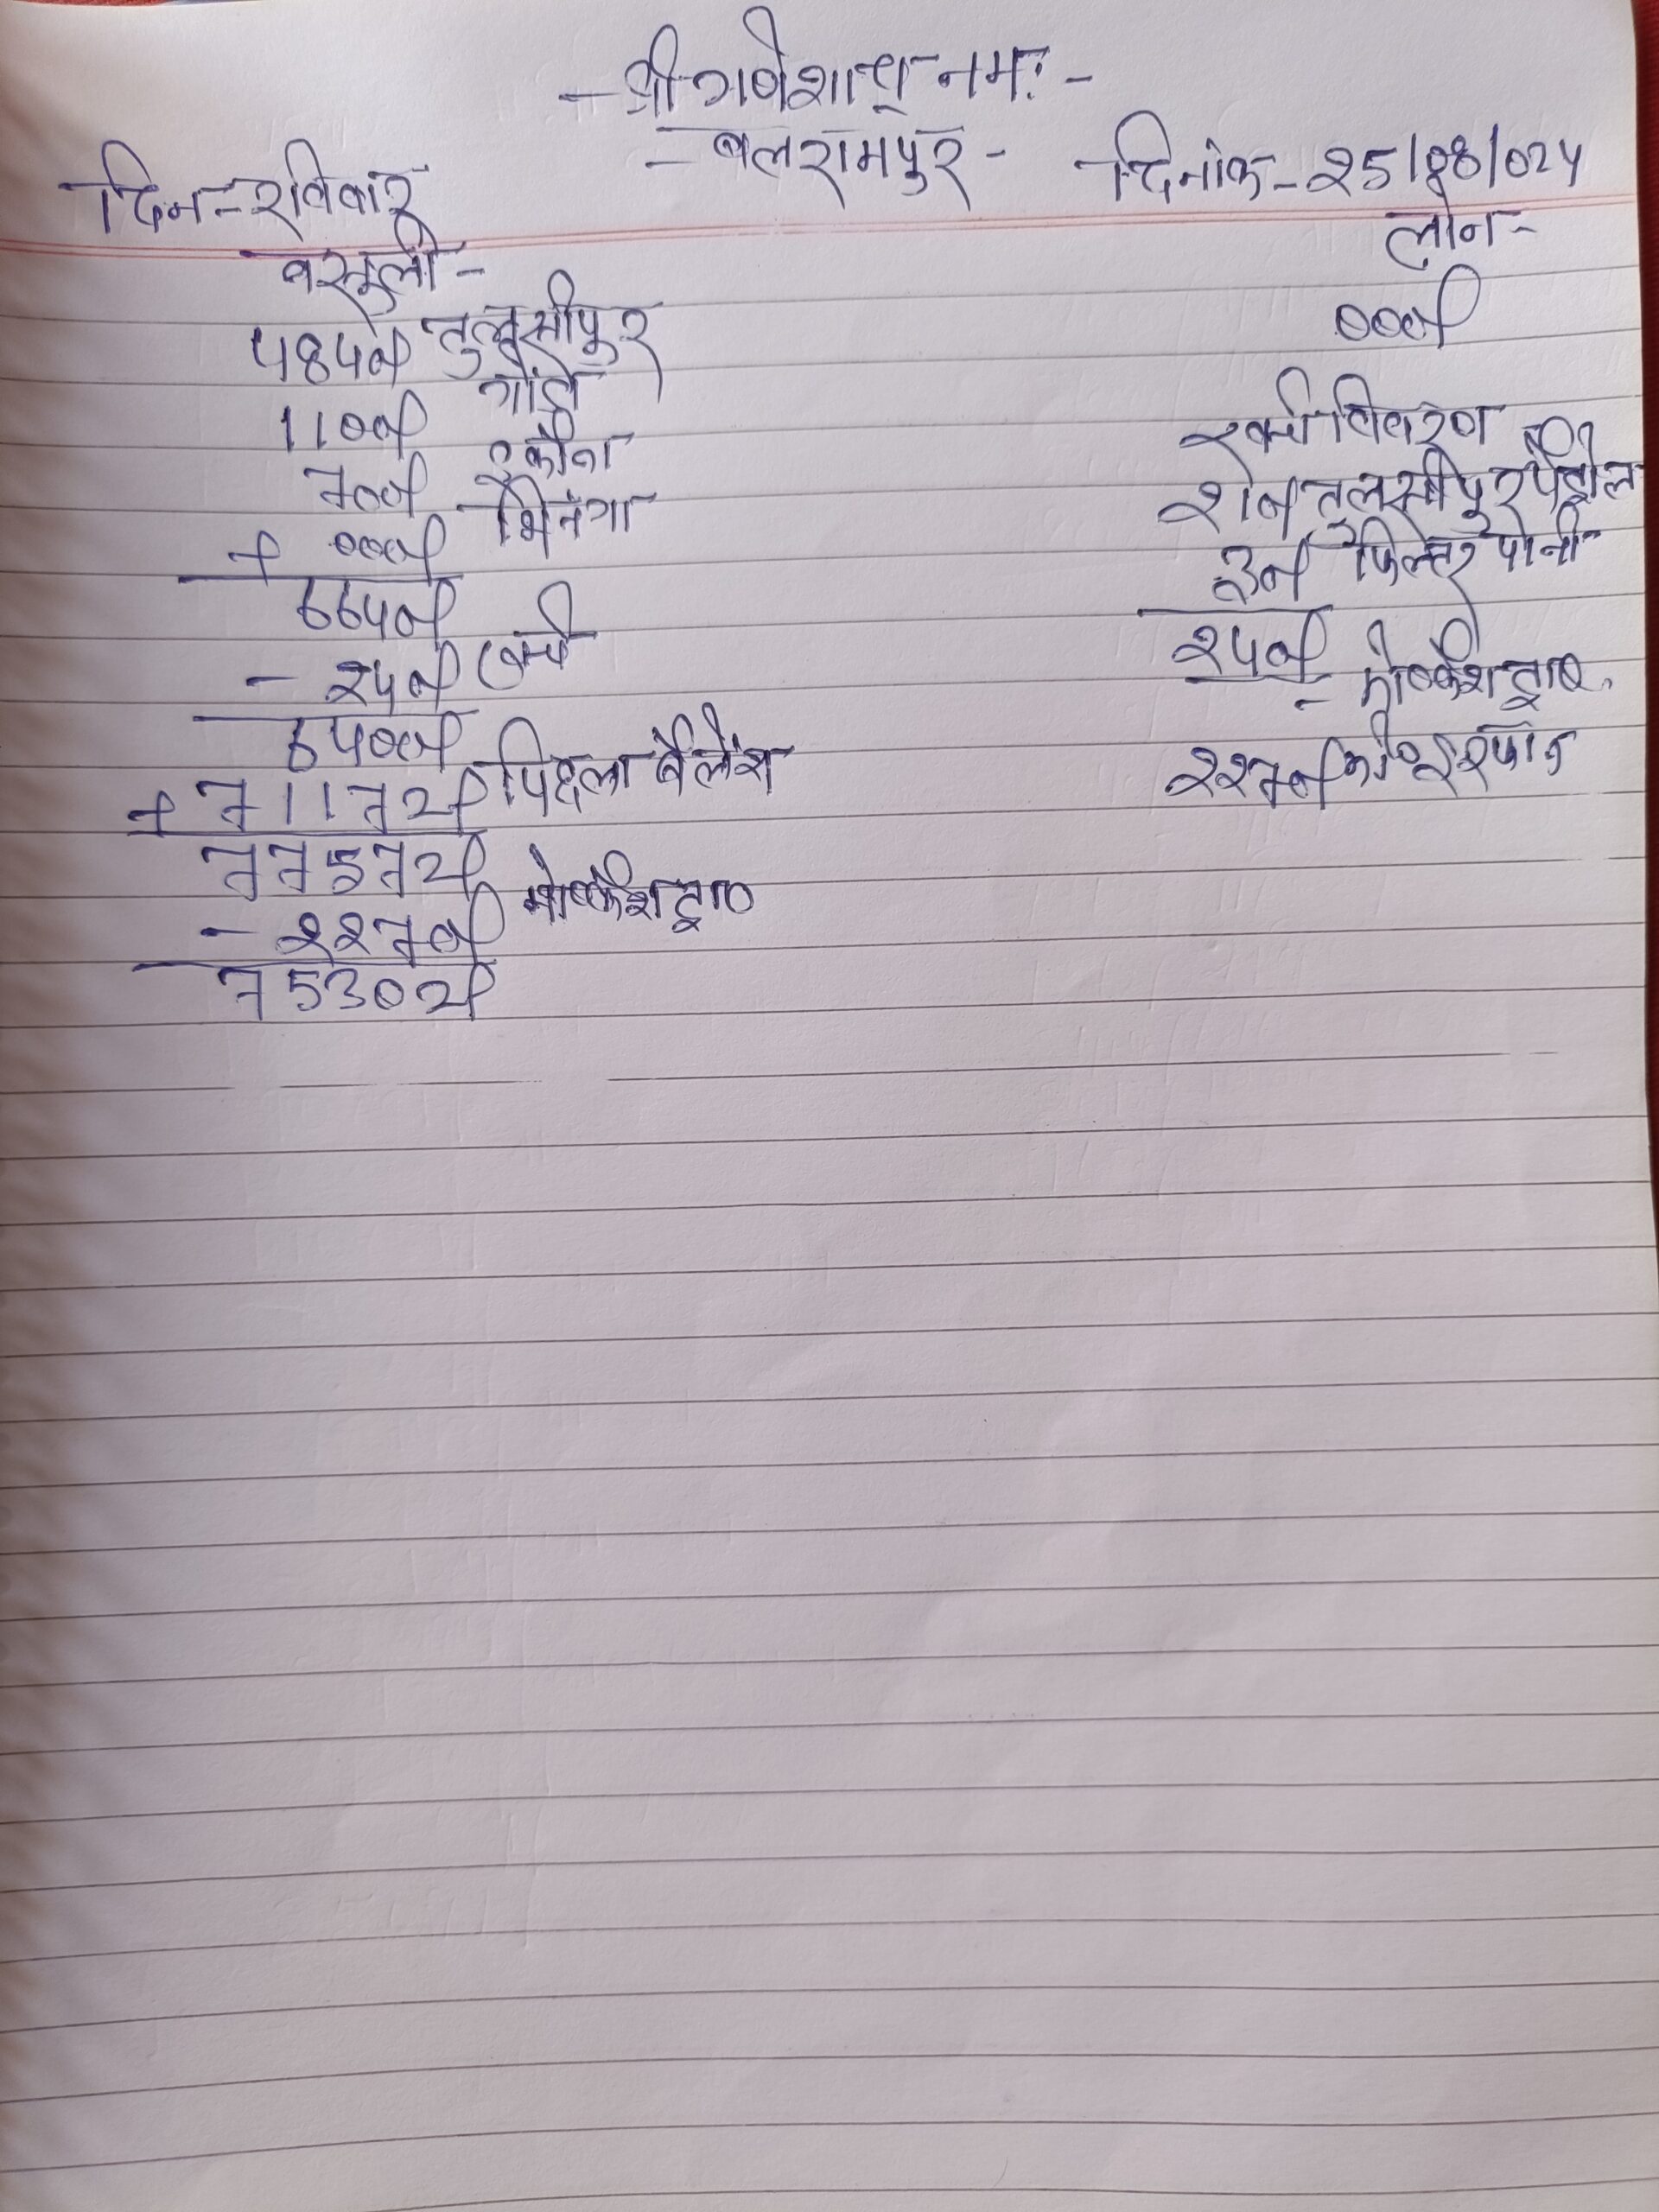 - श्री गणेशाय नमः -
- बलरामपुर -
दिन - रविवार
दिनांक - 25/08/024
वसूली -
4840 तुलसीपुर
1100 गोंडा
700 इकौना
+ 000 भिनगा
6640
- 240 खर्च
6400
+ 71172 पिछला बैलेंस
77572
- 2270 मो० कैश द्वारा
75302
लोन -
000
खर्चा विवरण
210 तुलसीपुर पेट्रोल
30 फिल्टर पानी
240
- मो० कैश द्वारा
2270